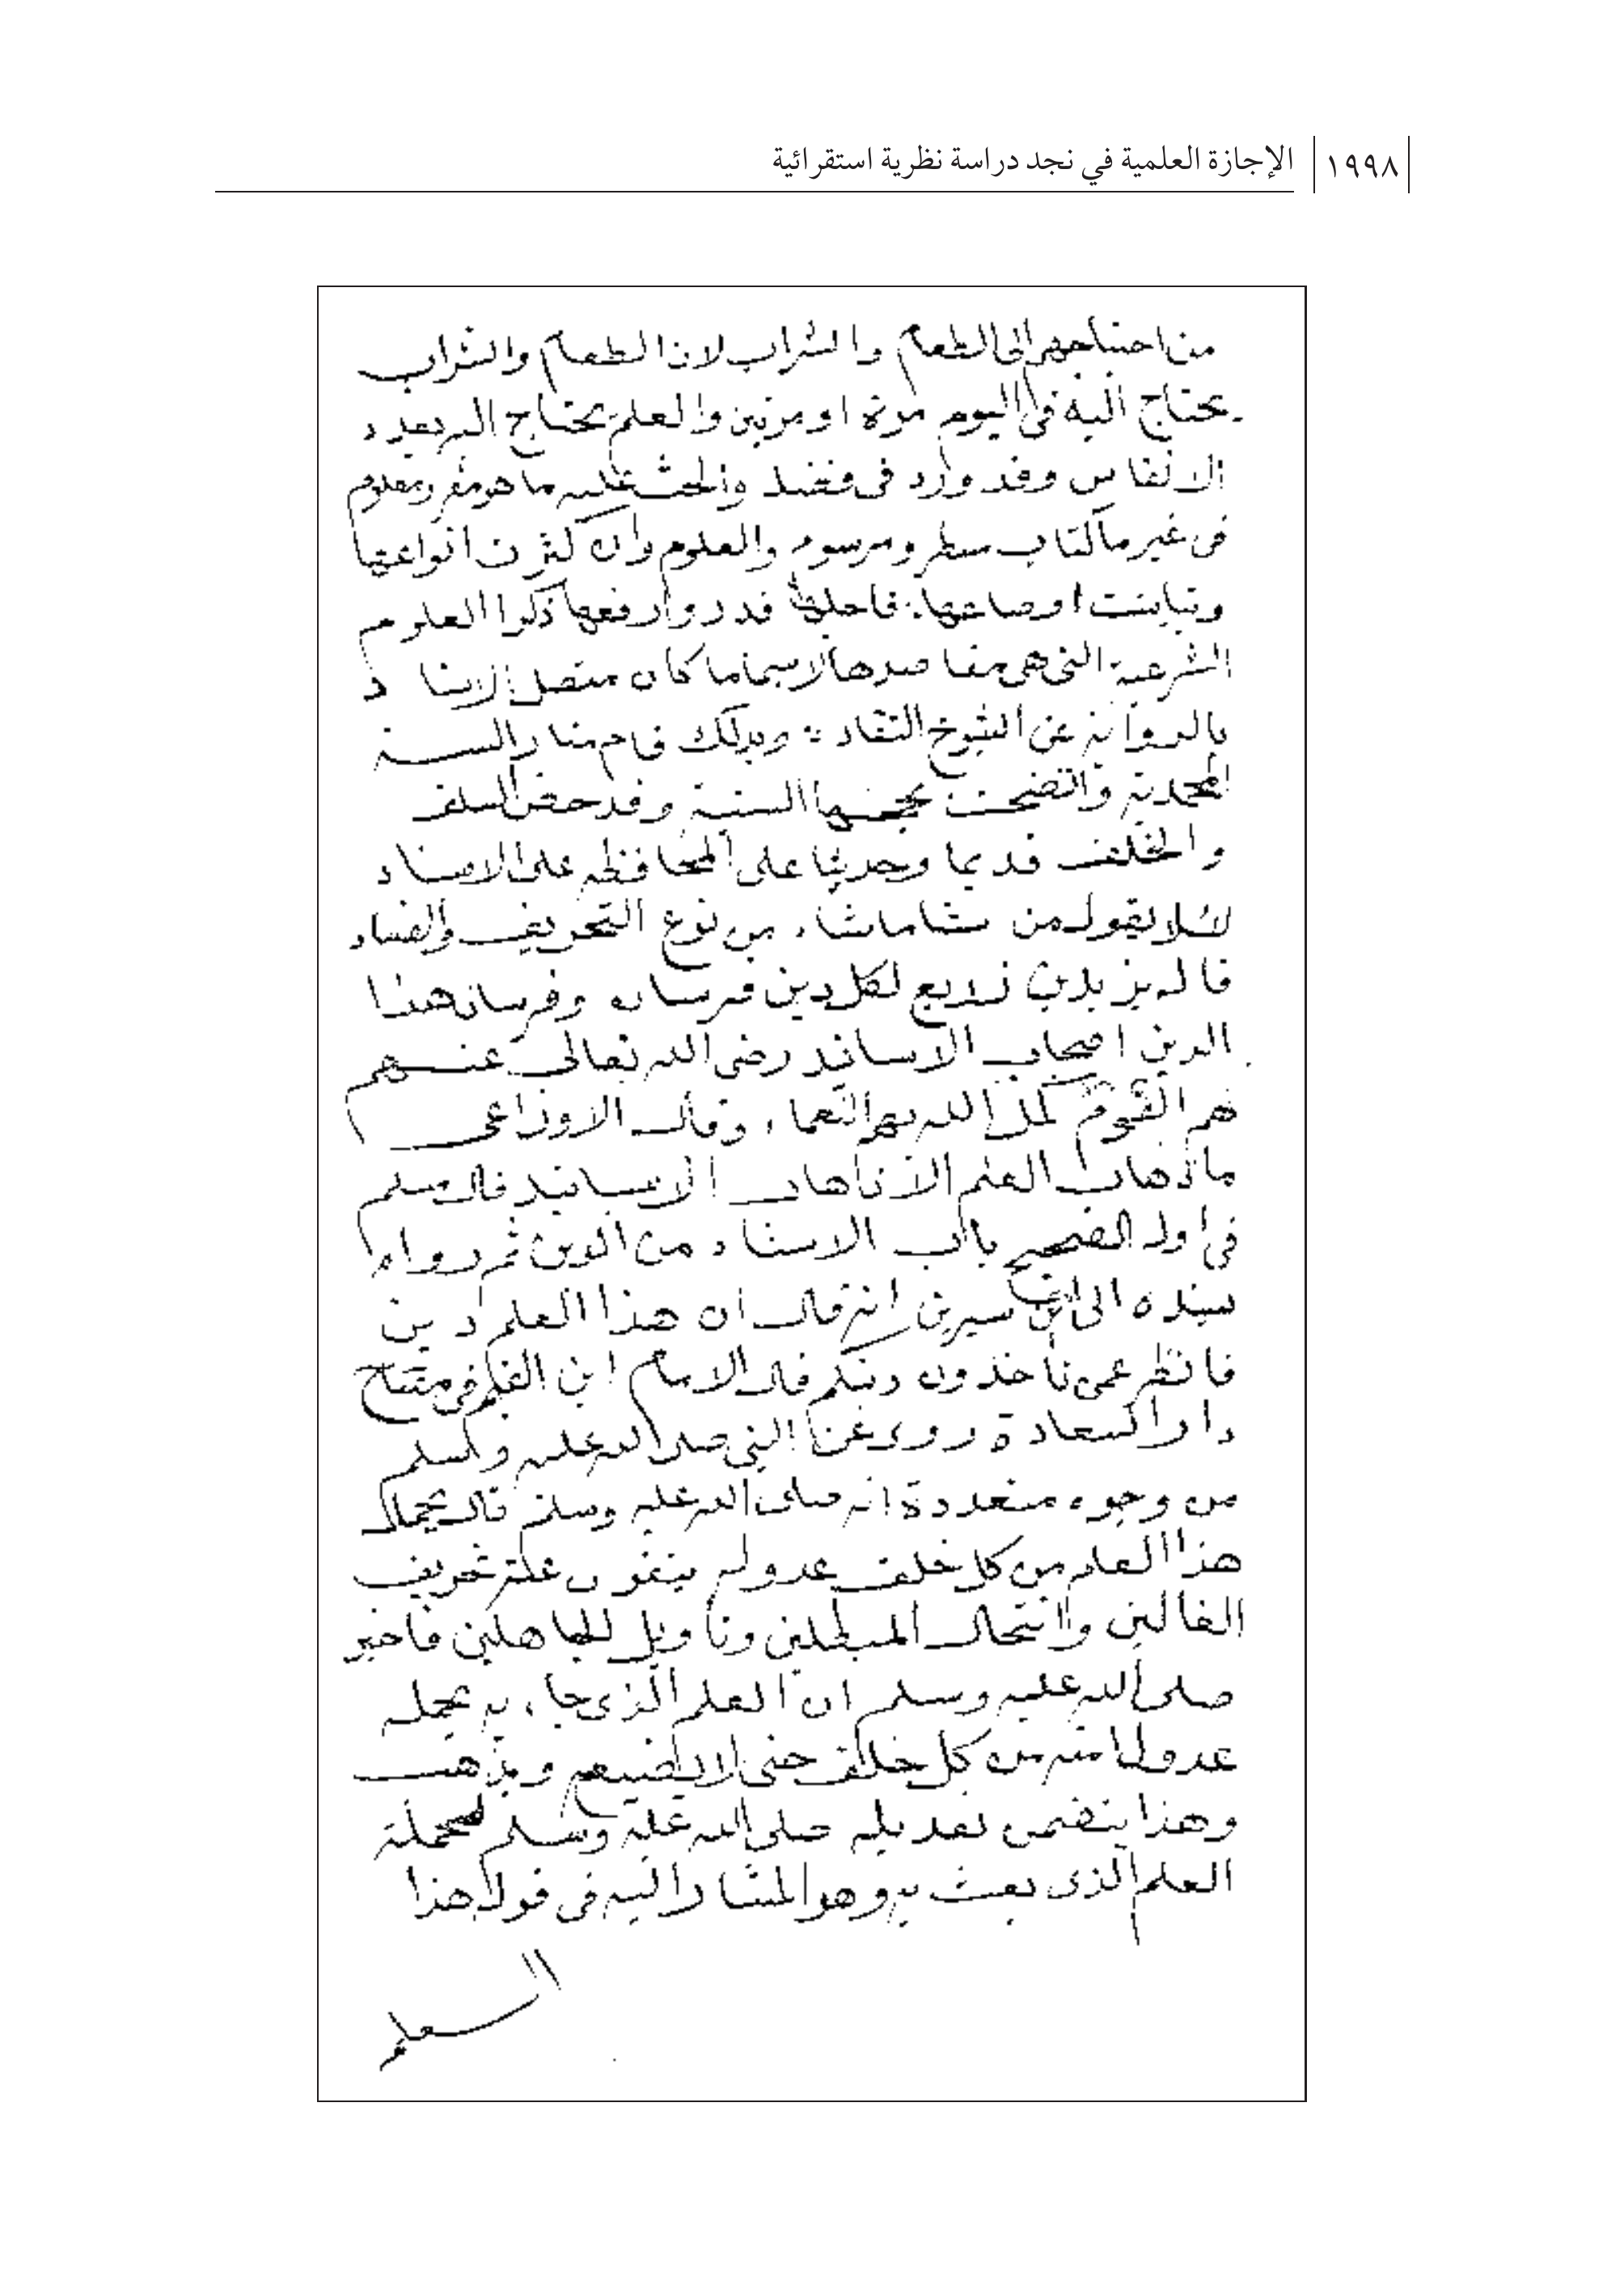 الإجازة العلمية في نجد دراسة نظرية استقرائية ١٩٩٨
من احتياجهم الى الطعام والشراب لان الطعام والشراب
يحتاج اليه في اليوم مرة او مرتين والعلم يحتاج اليه بعدد
الانفاس وقد ورد في فضله والحث عليه ما هو مقرر ومعلوم
في غير ما كتاب مسطر ومرسوم والعلوم وان كثرت انواعها
وتباينت اوضاعها فاجلها قدرا وارفعها ذكرا العلوم
الشرعية التي هي مقاصدها لا سيما ما كان متصل الاسناد
بالرواية عن الشيوخ النقاد وبذلك قام منار السنة
المحمدية واتضحت محجتها السنية وقد حض السلف
والخلف قديما وحديثا على المحافظة على الاسناد
لئلا يقول من شا ما شاء من نوع التحريف والفساد
قال يزيد بن زريع لكل دين فرسان وفرسان هذا
الدين اصحاب الاسانيد رضي الله تعالى عنهم
هم القوم كمل الله بهم النعماء وقال الاوزاعي
ما ذهاب العلم الا ذهاب الاسانيد قال مسلم
في اول الصحيح باب الاسناد من الدين ثم رواه
بسنده الى ابن سيرين انه قال ان هذا العلم دين
فانظر عمن تأخذون دينكم قال الامام ابن القيم في مفتاح
دار السعادة روي عن النبي صلى الله عليه وسلم
من وجوه متعددة انه صلى الله عليه وسلم قال يحمل
هذا العلم من كل خلف عدوله ينفون عنه تحريف
الغالين وانتحال المبطلين وتأويل الجاهلين فاخبر
صلى الله عليه وسلم ان العلم الذي جاء به يحمله
عدول امته من كل خلف حتى لا يضيع ويذهب
وهذا يتضمن تعديله صلى الله عليه وسلم لحملة
العلم الذي بعث به وهو المشار اليه في قوله هذا
العلم